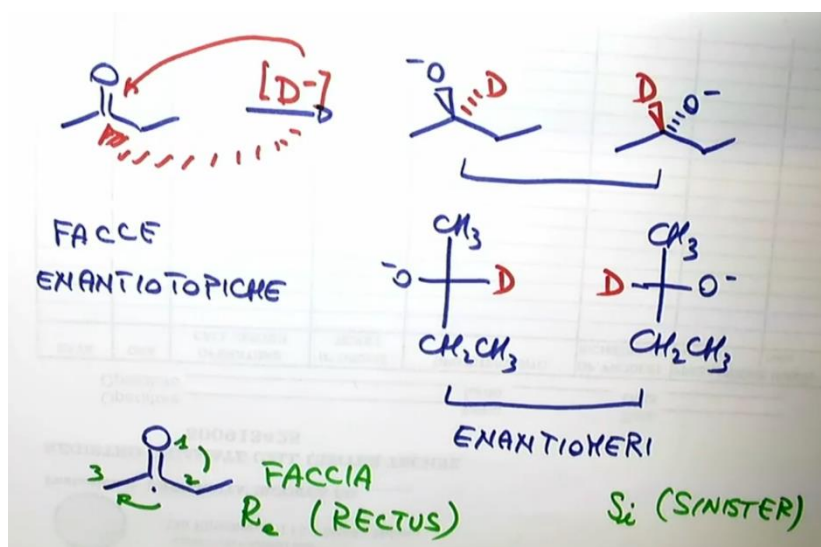 O
[D-]
-O D
D O-
FACCE
ENANTIOTOPICHE
CH3
-O D
CH2CH3
CH3
D O-
CH2CH3
ENANTIOMERI
O 1
3 2
R
FACCIA
Re (RECTUS)
Si (SINISTER)